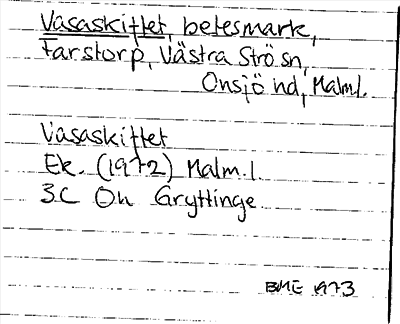 Vasaskiftet, betesmark,
Tarstorp, Västra Strö sn,
Onsjö hd, Malm.l.
Vasaskiftet
Ek. (1972) Malm.l.
3C On Gryttinge
BME 1973